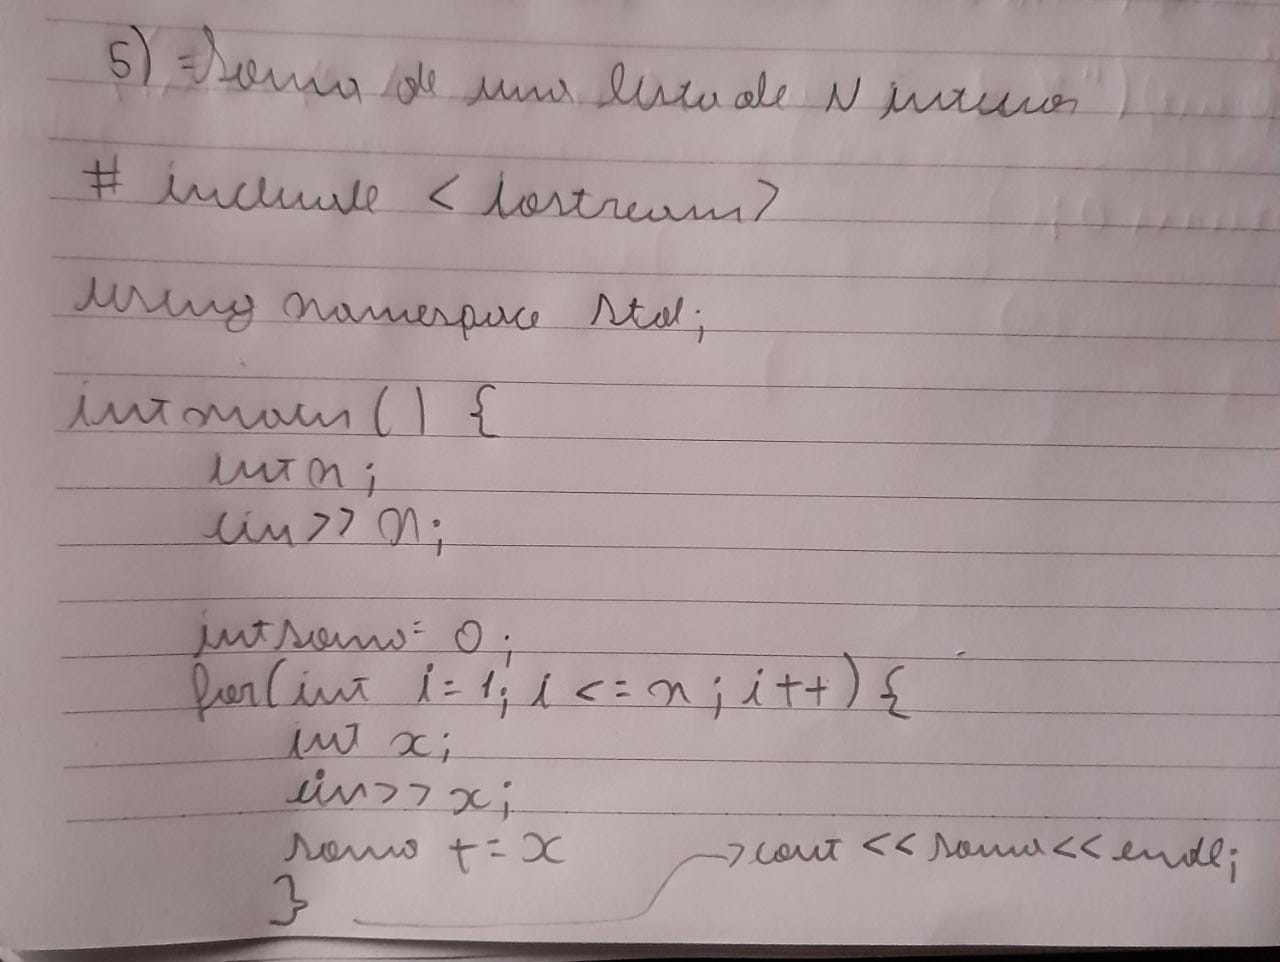 5) "Soma de uma lista de N inteiros"
# include < iostream>
using namespace std;
int main () {
int n;
cin >> n;
int soma = 0;
for (int i = 1; i <= n; i ++) {
int x;
cin >> x;
soma += x
}
→ cout << soma << endl;